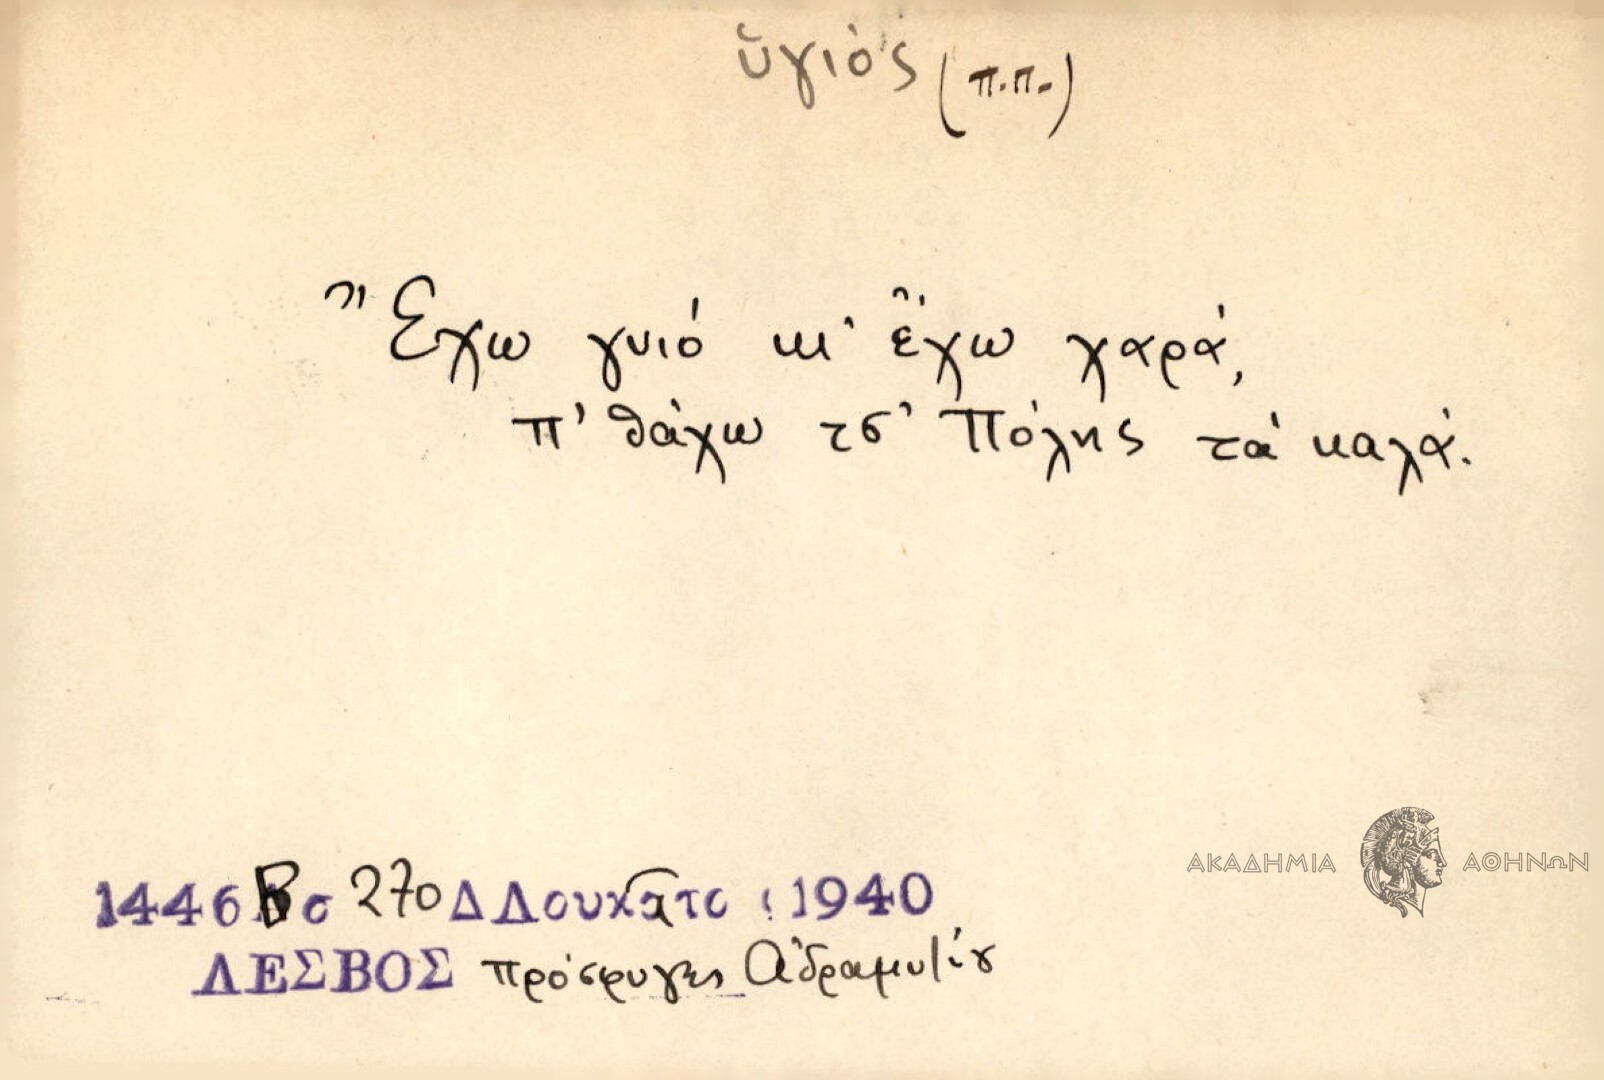 ὑγιός (π.π.)
Ἔχω γυιό κι' ἔχω χαρά,
π' θάχω τσ' Πόλης τά καλά.
1446 Β σ 270 Δ Λουκατσ 1940
ΛΕΣΒΟΣ πρόσφυγες Ἀδραμυττίου
ΑΚΑΔΗΜΙΑ ΑΘΗΝΩΝ